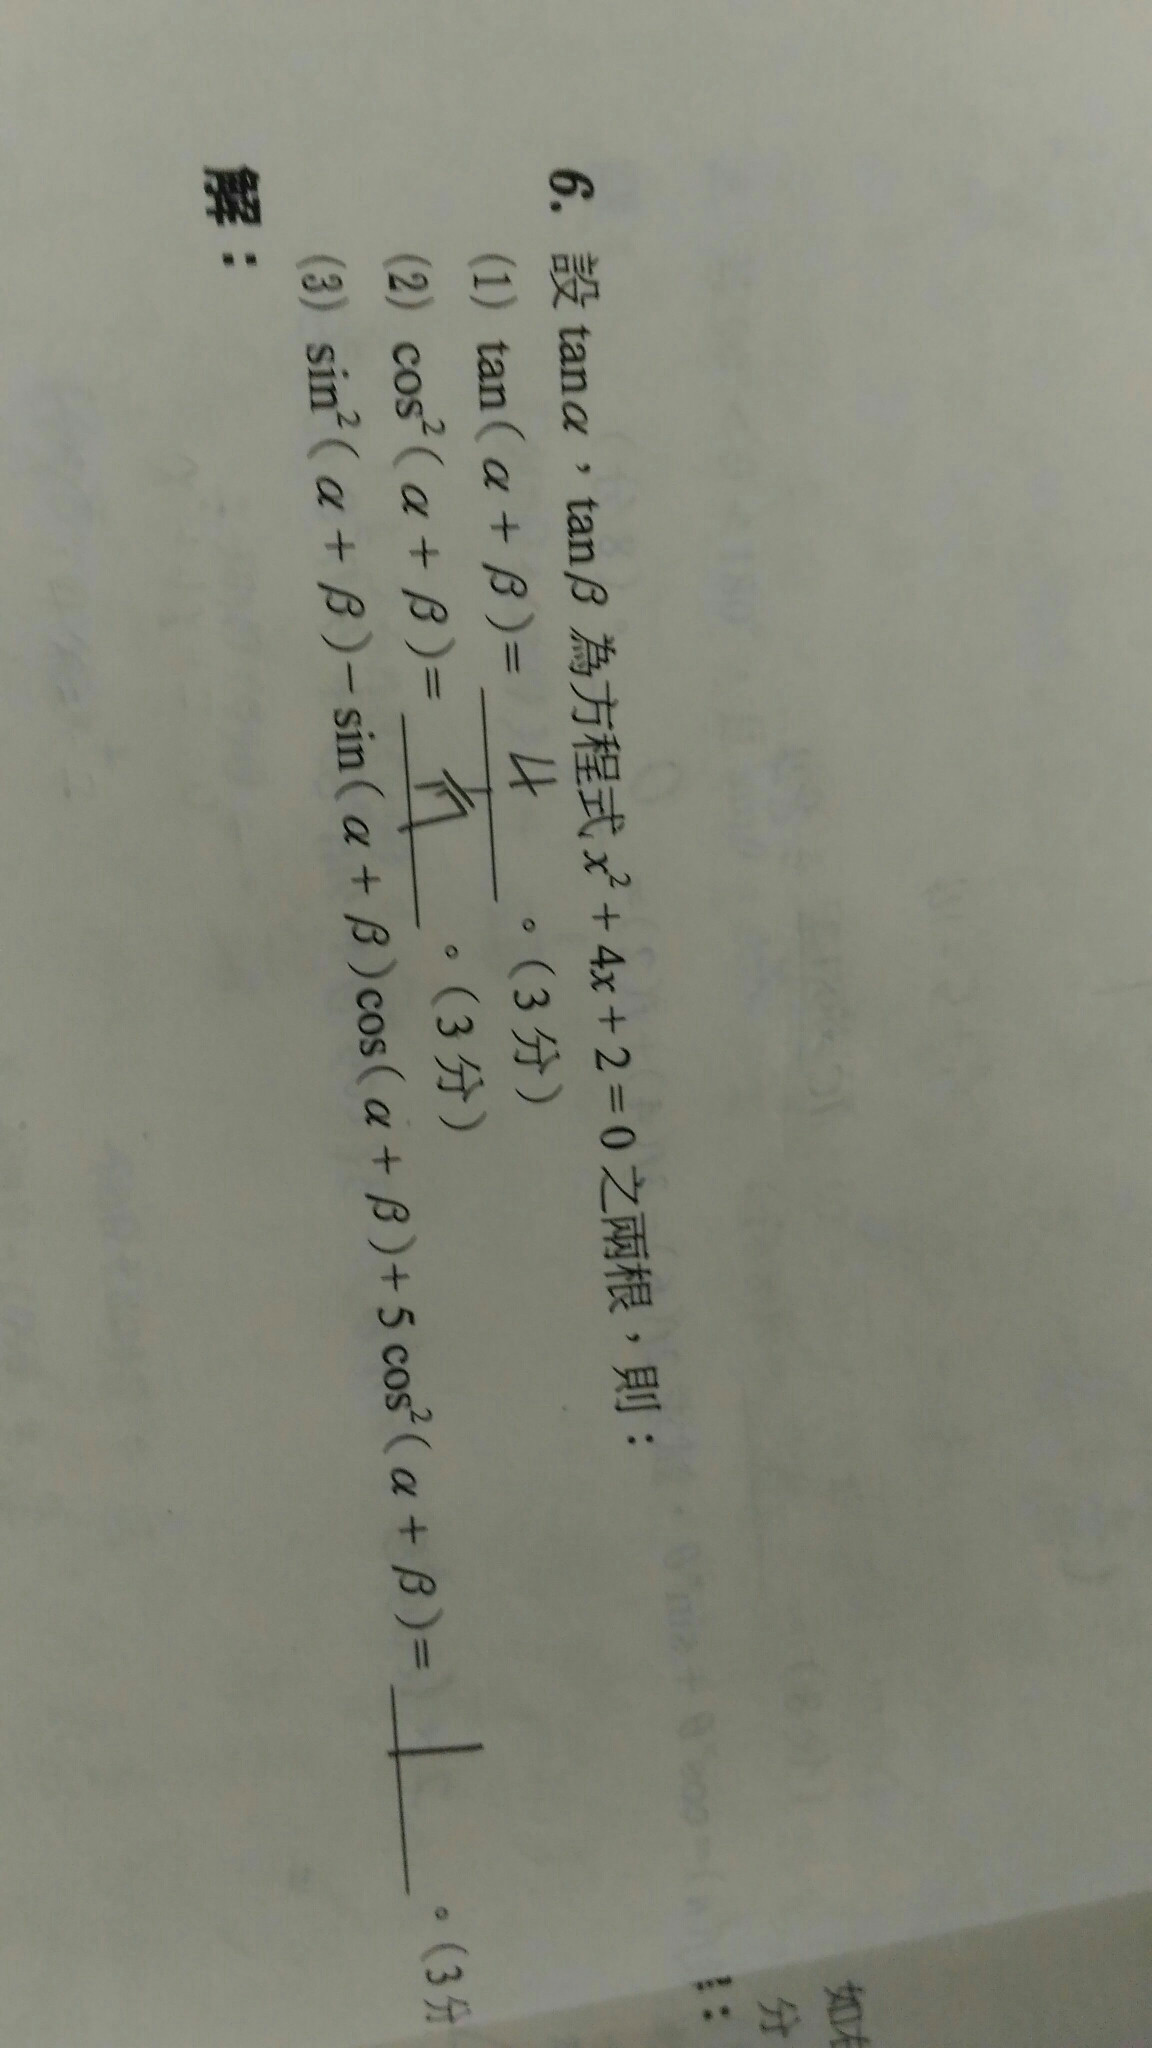 6. 設 tanα，tanβ 為方程式 x² + 4x + 2 = 0 之兩根，則：
(1) tan( α + β )= 4 。(3 分)
(2) cos²( α + β )= 1/17 。(3 分)
(3) sin²( α + β )−sin( α + β )cos( α + β )+ 5 cos²( α + β )= 1 。(3 分
解：